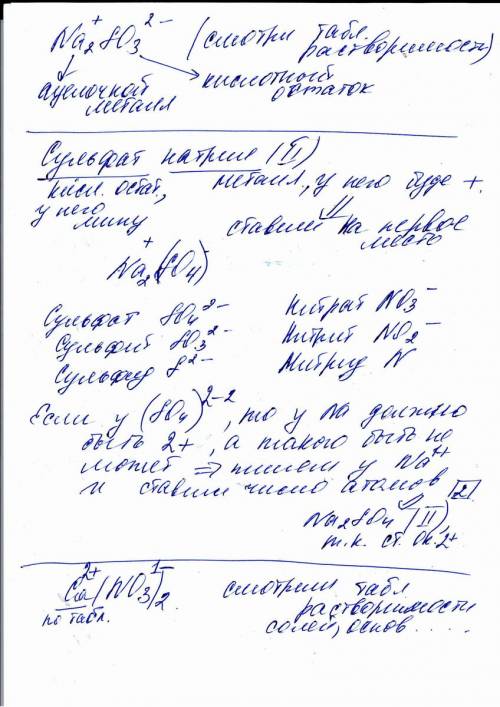 Na₂⁺SO₃²⁻ (смотри табл.
растворимости)
щелочной кислотный
металл остаток
Сульфат натрия (II)
кисл. остат., металл, у него буде +.
у него
мину ставим на первое
место
Na₂⁺(SO₄)⁻
Сульфат SO₄²⁻ Нитрат NO₃⁻
Сульфит SO₃²⁻ Нитрит NO₂⁻
Сульфид S²⁻ Нитрид N
Если у (SO₄)²⁻², то у Na должно
быть 2+, а такого быть не
может ⇒ пишем у Na¹⁺
и ставим число атомов 2
Na₂SO₄ (II),
т.к. ст. ок. 2+
Ca²⁺(NO₃)¹⁻₂ смотрим табл
по табл. растворимости
солей, основ .....